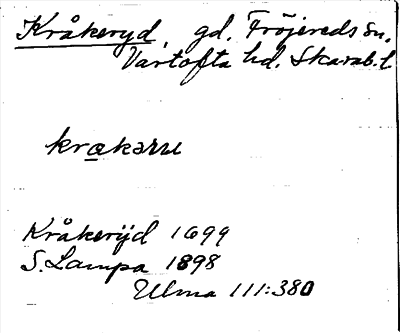 Kråkeryd, gd. Fröjereds sn.
Vartofta hd. Skarab. l
krakəru
Kråkerijd 1699
S. Lampa 1898
Ulma 111:380